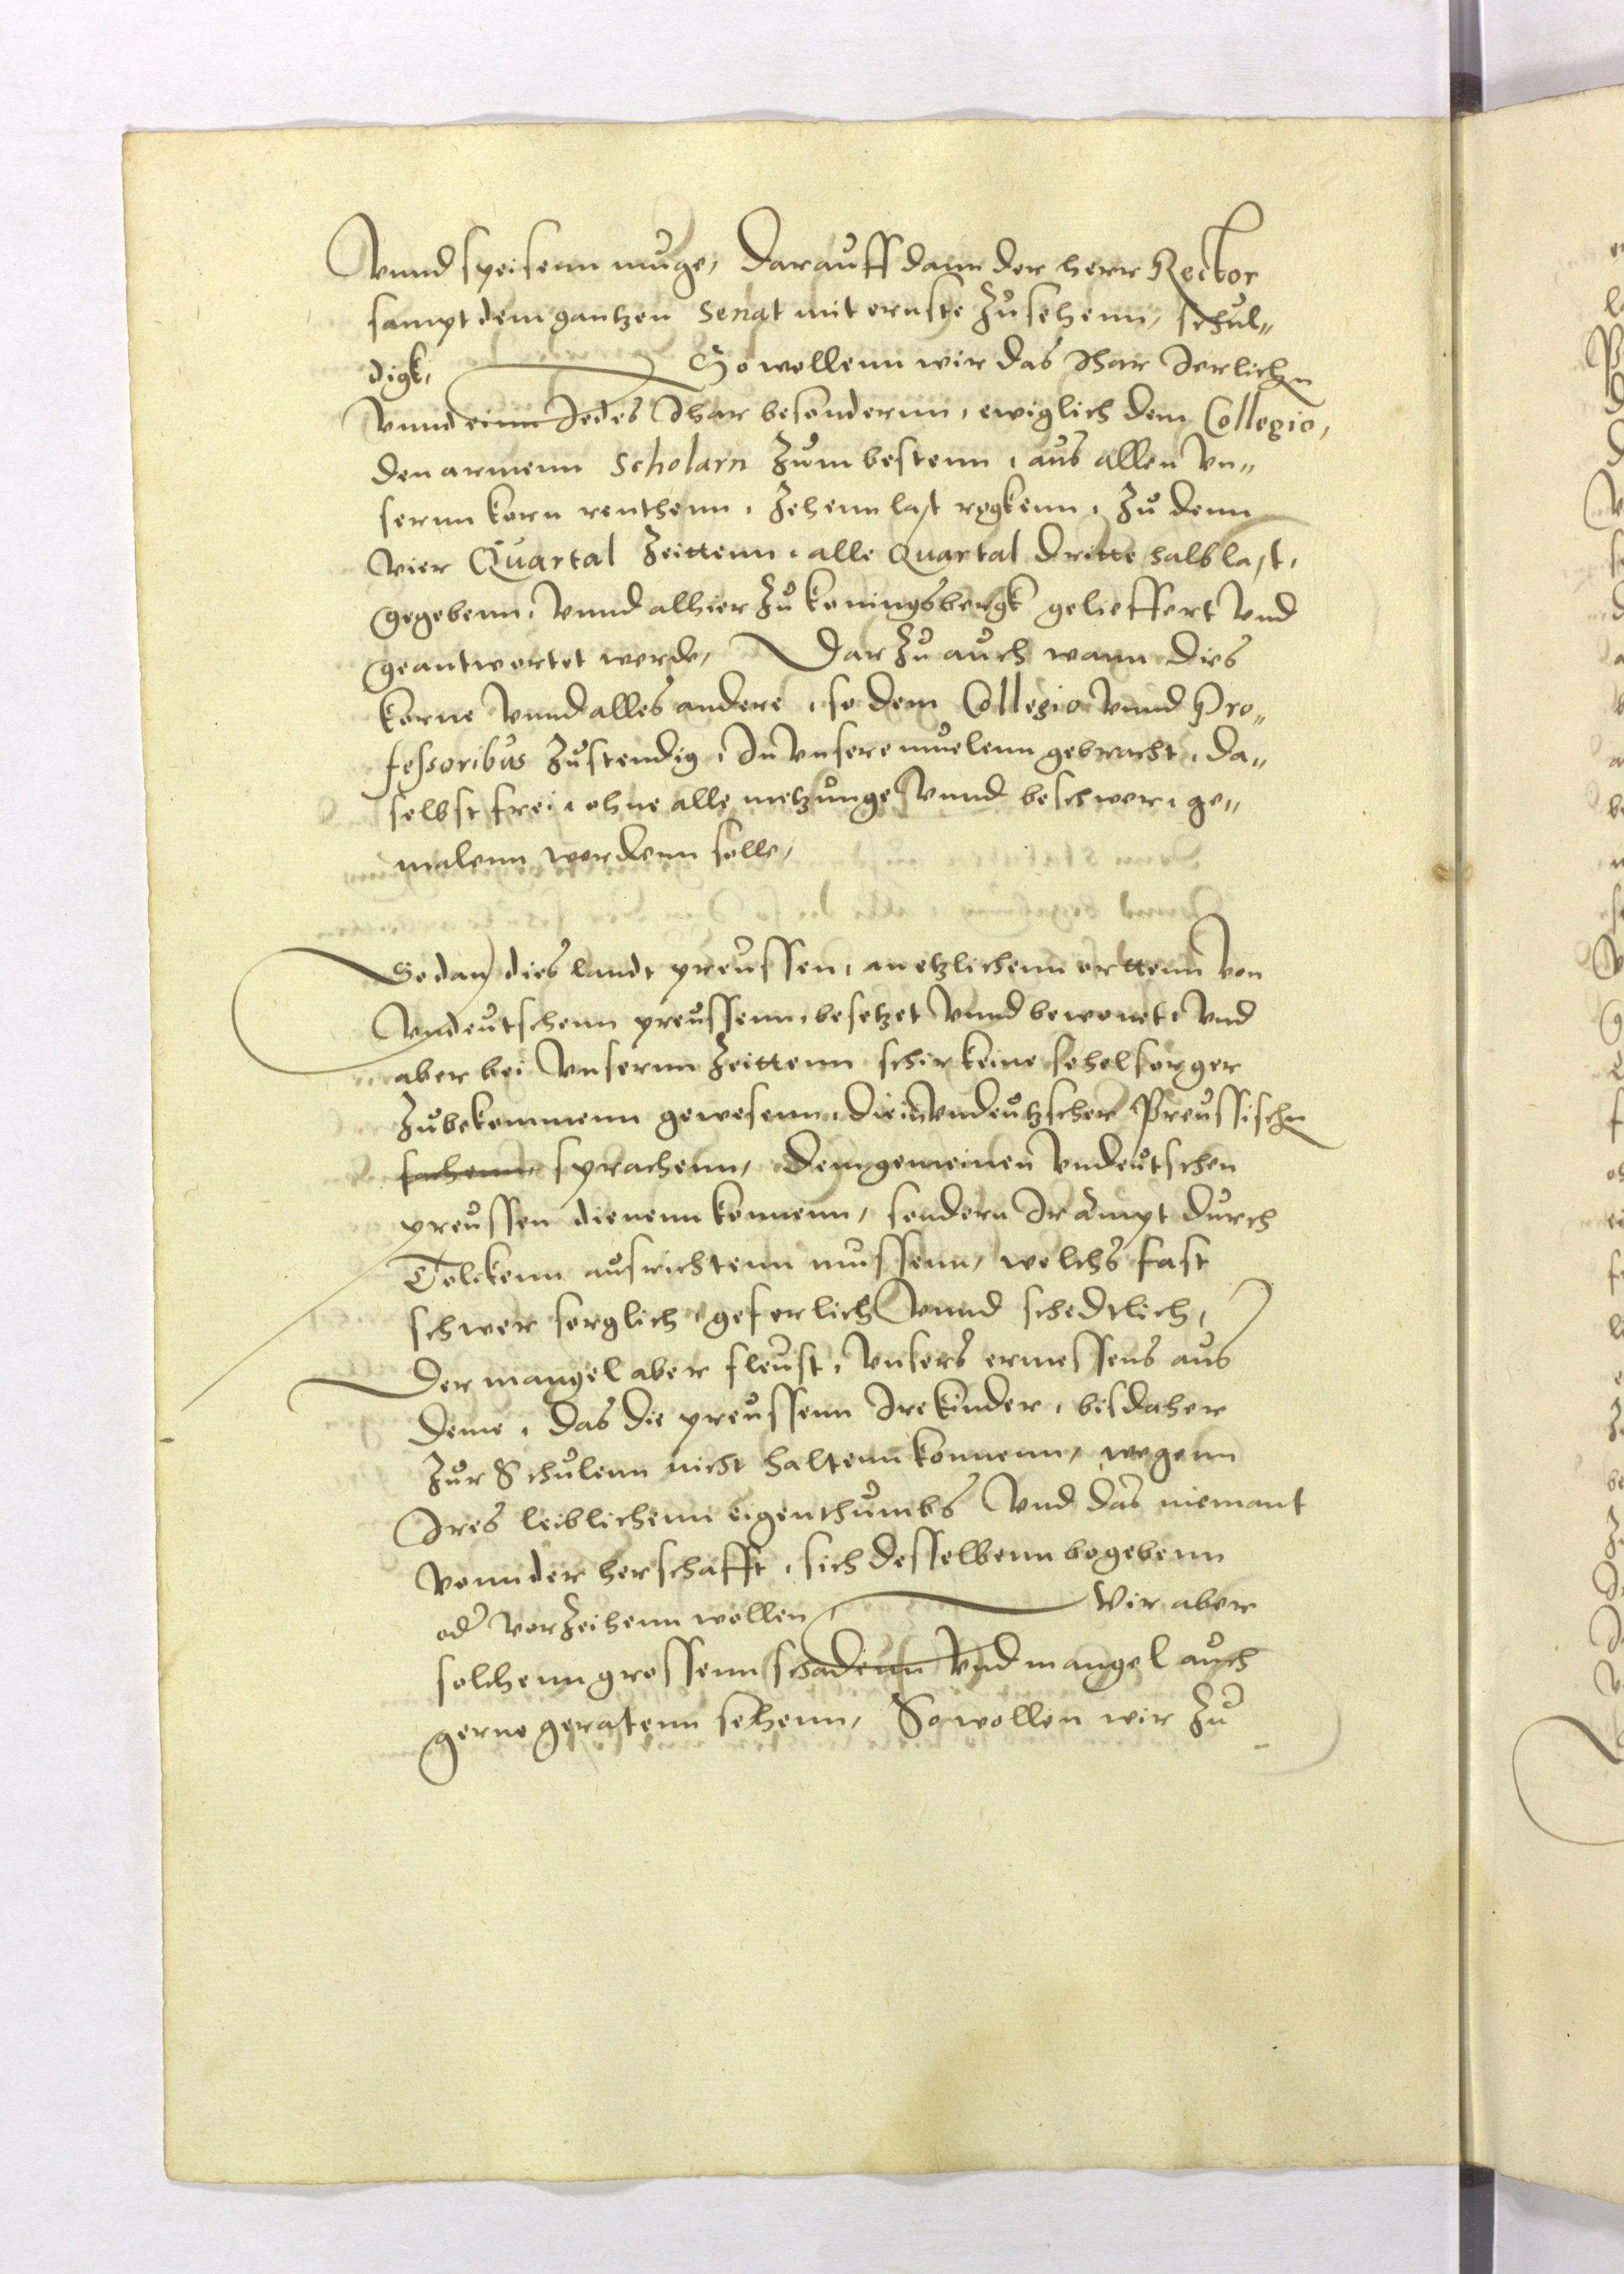 Vnnd speisenn muge, Darauff dann der herr Rector
sampt dem gantzen Senat mit ernste zusehenn, schul„
digk, So wollenn wir das Ihar Jerlichn
Vnnd einn Jedes Ihar besondernn, ewiglich dem Collegio,
den armenn Scholarn zum bestenn, aus allen Vn„
sernn korn renthenn, zehenn last rogkenn, zu denn
vier Quartal zeittenn, alle Quartal dritte halb last,
gegebenn, Vnnd alhier zu koningsbergk gelieffert Vnd
geantwortet werde, Dar zu auch wann dies
korne Vnnd alles andere, so dem Collegio Vnnd Pro„
fessoribus zustendig, In Vnsere muelenn gebracht, da„
selbst frei, ohne alle metzunge Vnnd beschwer, ge„
malenn werdenn solle,
So dan dies landt preussen, an etzlichenn orttenn von
Vndeutschenn preussenn, besetzet Vnnd bewonet, Vnd
aber bei Vnsernn zeittenn schir keine sehelsorger
zubekommenn gewesenn, die in Vndeutzscher Preussischn
sachenn sprachenn, dem gemeinen Vndeutschen
preussen dienenn konnenn, sondern Ir ampt durch
Tolckenn ausrichtenn mussenn, welchs fast
schwer sorglich, geferlich Vnnd schedtlich,
Der mangel aber fleust, Vnsers ermessens aus
deme, das die preussenn Ire kinder, bis daher
zur Schulenn nicht haltenn konnenn, wegenn
Ires leiblichenn eigenthumbs Vnd das niemant
vonn der herschafft, sich desselbenn begebenn
oder vorzeihenn wollen, Wir aber
solchenn grossenn schadenn Vnd mangel auch
gerne geratenn sehenn, So wollen wir zu